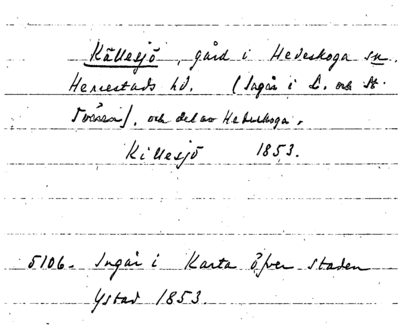 Källesjö, gård i Hedeskoga sn.
Herrestads hd. (Ingår i L. och St.
Tvären), och del av Hedeskoga.
Killesjö 1853.
5106. Ingår i Karta öfver staden
Ystad 1853